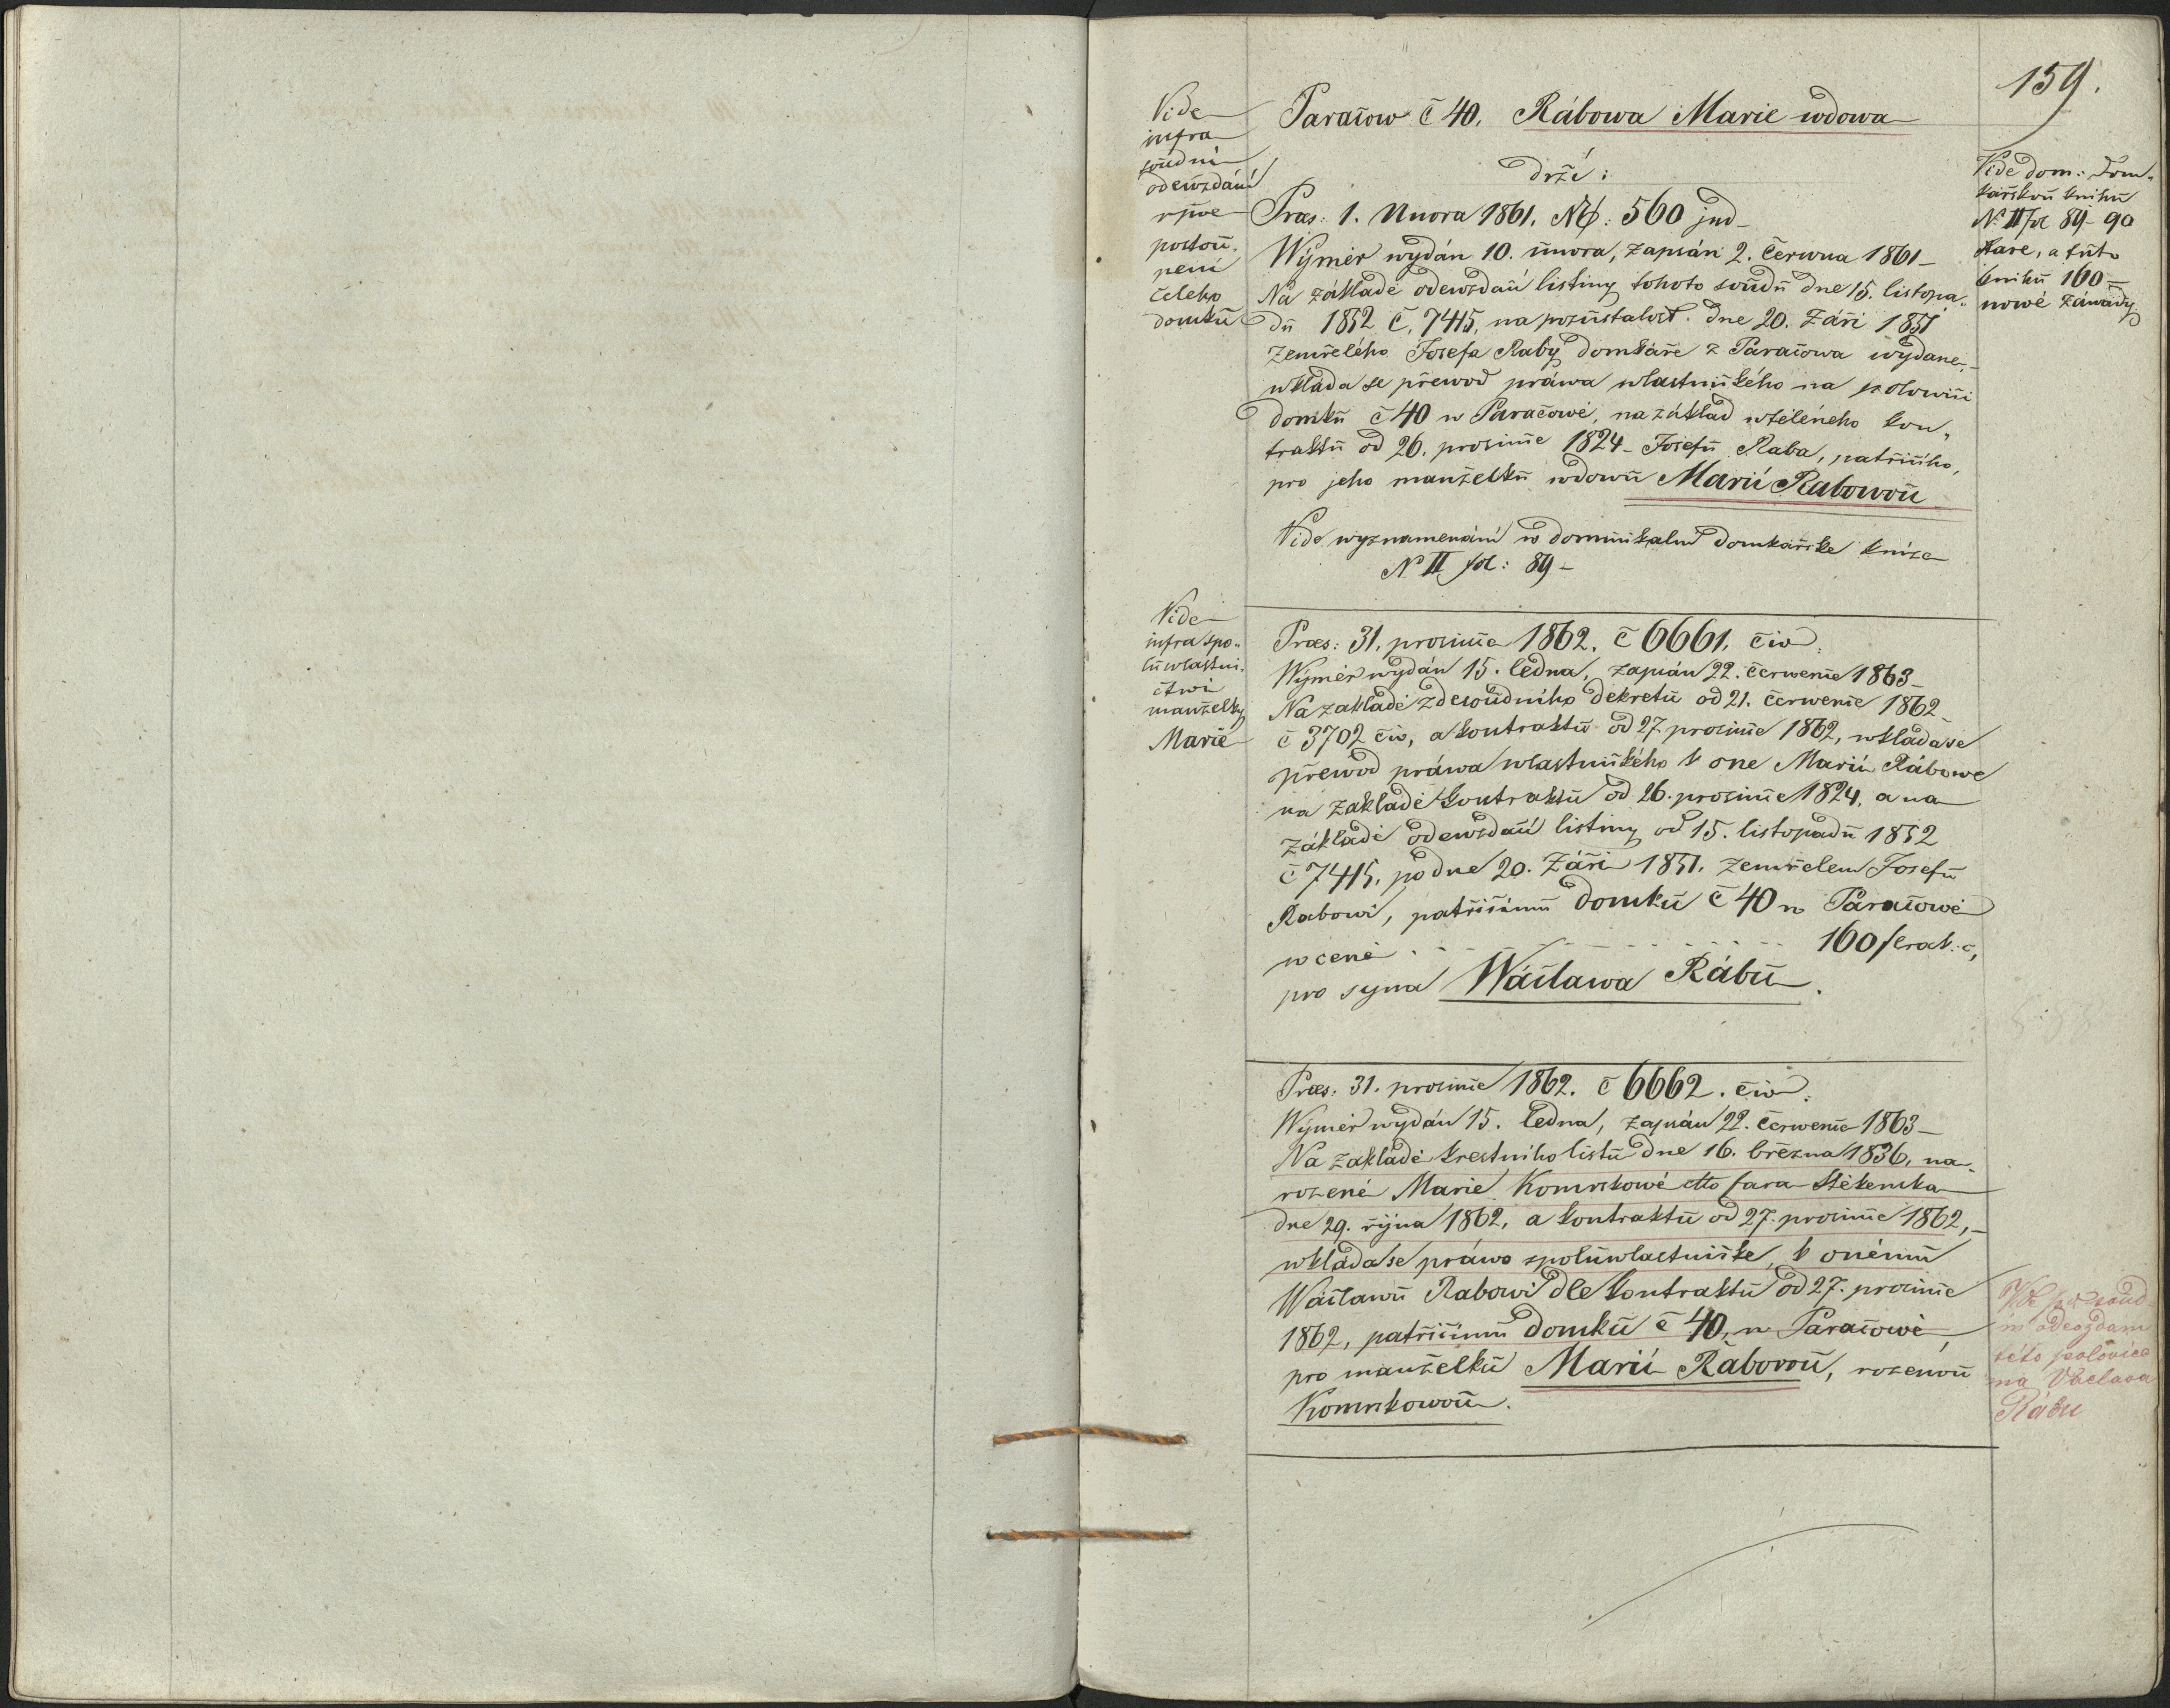 159.
Vide
infra
soudní
odewzdání
postou-
pení
celeho
domků
Paračow č 40. Rábowa Marie wdowa
drží:
Vide dom: Dom-
kařskou knihu
N: II fol 89-90
stare, a tuto
knihu 160 =
nowé záwady
Præs: 1. Unora 1861. NE: 560 jud
Wýměr wydán 10. února, zapsán 2. Června 1861 –
Na základě odewzdací listiny tohoto soudu dne 15. listopa-
du 1852 č. 7415, na pozůstalost dne 20. Září 1851
zemřelého Josefa Raby domkáře z Paračowa wydane, –
wkláda se přewod práwa wlastnického na polowici
domku č 40 w Paračowě, na základ wtěleného kon-
traktu od 26. prosince 1824 – Josefu Raba, patřícího,
pro jeho manželku wdowu Marii Rabowou
Vide wyznamenání w dominikalní domkářske knize
N II fol: 89 –
Vide
infra spo-
luwlastni-
ctwí
manželky
Marie
Præs: 31. prosince 1862. č 6661. civ:
Wýměr wydán 15. ledna, zapsán 22. července 1863 –
Na zakladě zdesoudního dekretu od 21. července 1862
č 3702 civ, a kontraktu od 27. prosince 1862, wkláda se
přewod práwa wlastnického k one Marii Rábowe
na zakladě kontraktu od 26. prosince 1824, a na
základě odewzdací listiny od 15. listopadu 1852
č 7415, po dne 20. Září 1851. zemřelem Josefu
Rabowi, patřicímu domku č 40 w Paračowě
w ceně . . . . . . . . . . 160 f rak. č,
pro syna Wáclawa Rábu.
Præs: 31. prosince 1862. č 6662. civ:
Wýměr wydán 15. ledna, zapsán 22. července 1863 –
Na zakladě krestního listu dne 16. března 1836, na-
rozené Marie Komrskowé dtto fara Štěkenska
dne 29. října 1862, a kontraktu od 27. prosince 1862, –
wkláda se práwo spoluwlastnicke, k onému
Wáclawu Rabowi dle kontraktu od 27. prosince
1862, patřicímu domku č 40, w Paračowě,
pro manželku Marii Rabovou, rozenou
Komrskowou.
soud-
ní odevzdání
této polovice
na Václava
Rábu